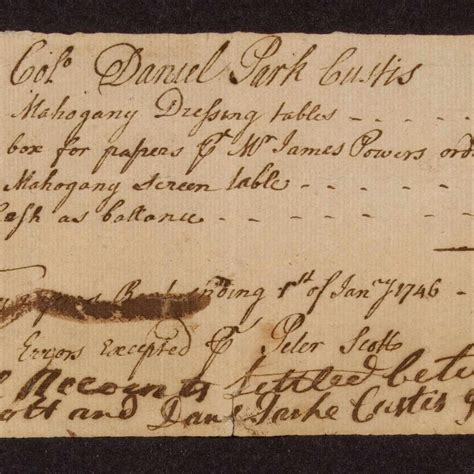 Colo Daniel Park Custis
Mahogany Dressing tables - - - -
box for papers pr Mr James Powers ord
Mahogany Screen table - - - -
Cash as ballance - - - - - -
ending 1st of Jany 1746 -
Errors Excepted pr Peter Scott
Accounts Settled betw
ott and Danl Parke Custis